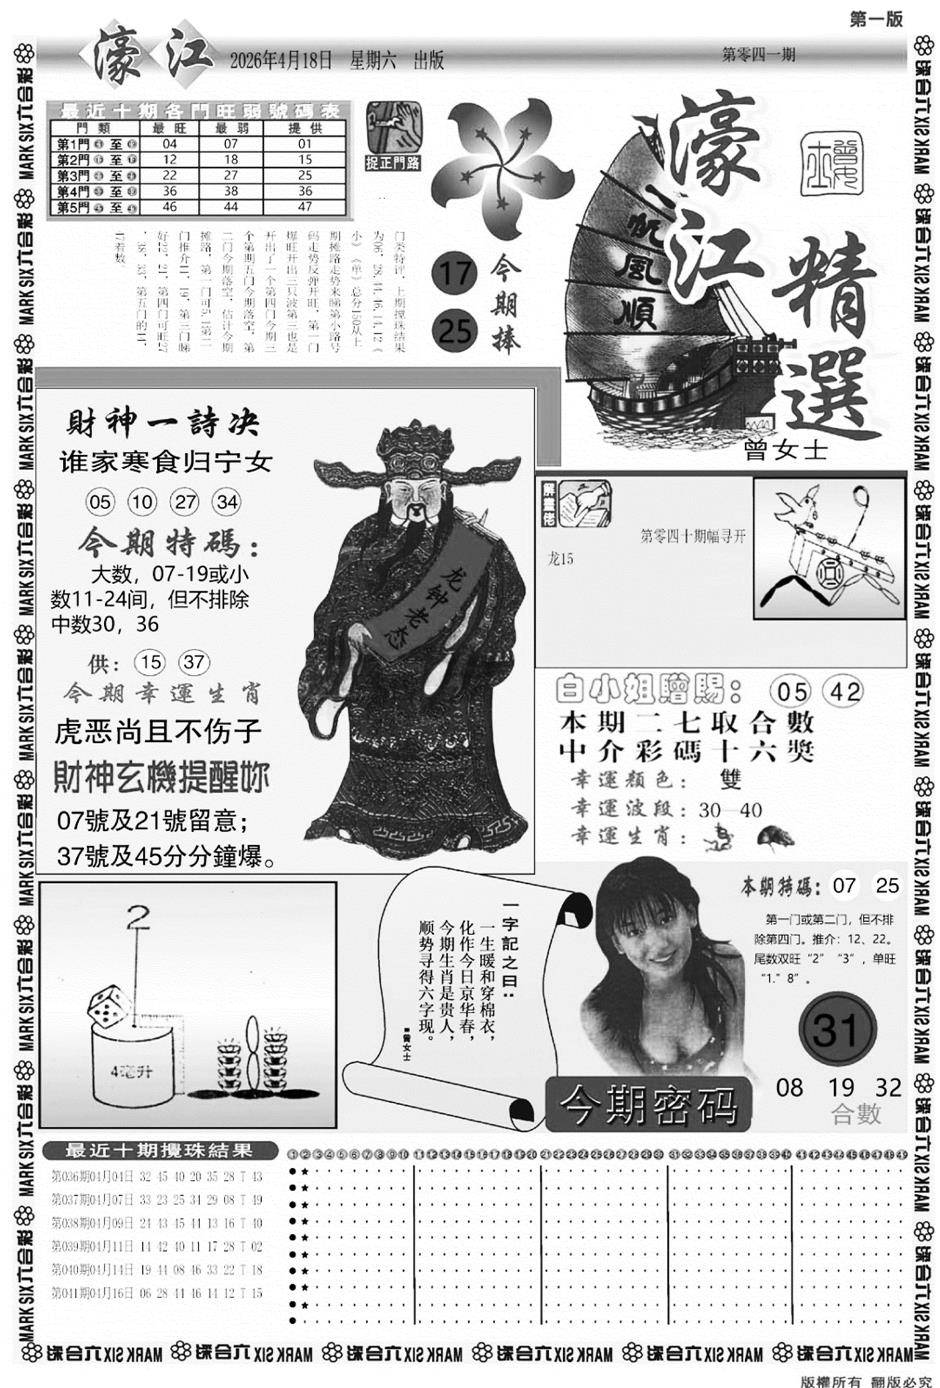 第一版
濠江
2026年4月18日 星期六 出版
第零四一期
最近十期各門旺弱號碼表
門類 最旺 最弱 提供
第1門 至 04 07 01
第2門 至 12 18 15
第3門 至 22 27 25
第4門 至 36 38 36
第5門 至 46 44 47
捉正門路
今期捧
17
25
一帆風順
濠江精選
曾女士
财神一詩决
谁家寒食归宁女
05 10 27 34
今期特碼：
大数，07-19或小
数11-24间，但不排除
中数30，36
供：15 37
今期幸運生肖
虎恶尚且不伤子
財神玄機提醒妳
07號及21號留意；
37號及45分分鐘爆。
龙钟老态
第零四十期幅寻开
龙15
白小姐贈賜：05 42
本期二七取合數
中介彩碼十六獎
幸運顏色：雙
幸運波段：30—40
幸運生肖：
2
4毫升
一字記之曰：
一生暖和穿棉衣，
化作今日京华春，
今期生肖是贵人，
顺势寻得六字现。
曾女士
本期特碼：07 25
第一门或第二门，但不排
除第四门。推介：12、22。
尾数双旺“2”“3”，单旺
“1.”8”。
31
08 19 32
合數
今期密码
最近十期攪珠結果
第036期04月04日 32 45 40 20 35 28 T 43
第037期04月07日 33 23 25 34 29 08 T 49
第038期04月09日 24 43 45 44 13 16 T 40
第039期04月11日 14 42 40 11 17 28 T 02
第040期04月14日 19 44 08 46 33 22 T 18
第041期04月16日 06 28 44 46 14 12 T 15
六合彩 MARK SIX
版權所有 翻版必究